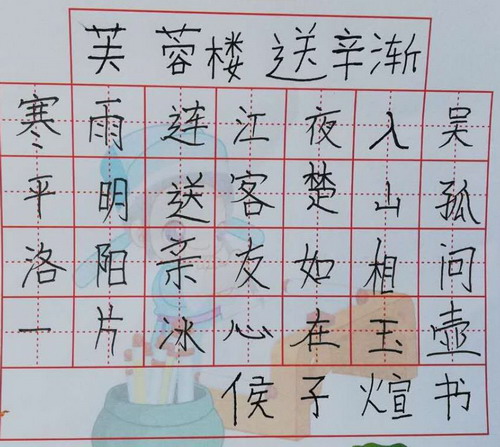 芙蓉楼送辛渐
寒雨连江夜入吴
平明送客楚山孤
洛阳亲友如相问
一片冰心在玉壶
侯子煊书